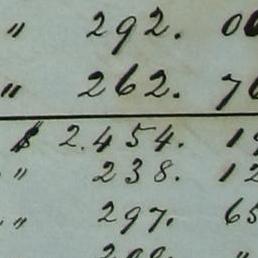 " 292. 00
" 262. 70
$ 2.454. 1
" 238. 12
" 297. 65